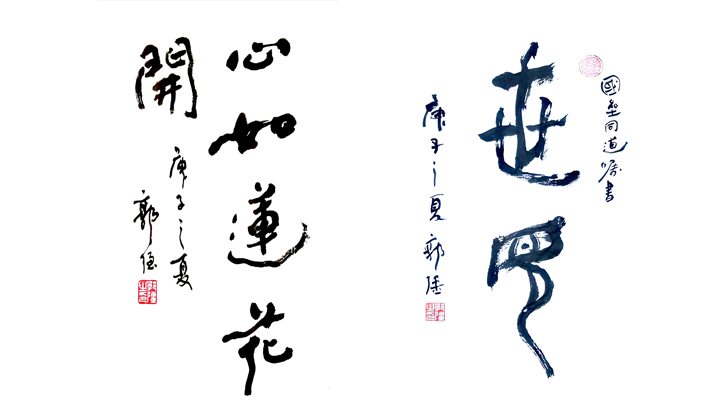 心如蓮花
開
庚子之夏
郭
國同道囑書
世
庚子之夏 郭